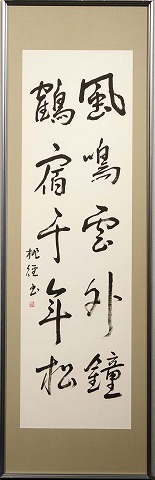 風鳴雲外鐘
鶴宿千年松
桃径書